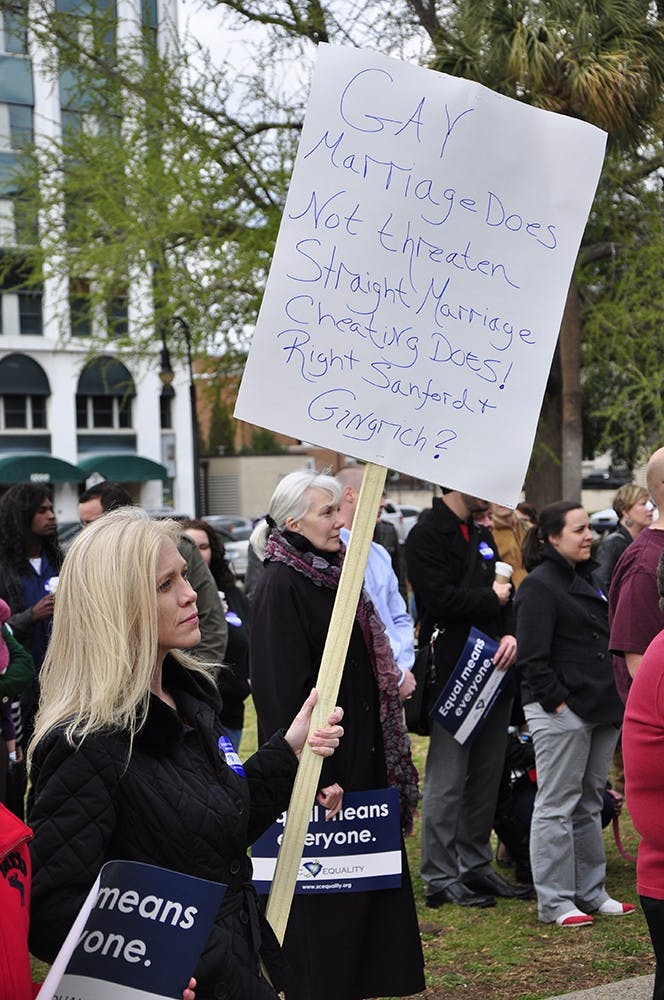 GAY
Marriage Does
Not threaten
Straight Marriage
Cheating Does!
Right Sanford +
Gingrich?
Equal means
everyone.
means
everyone.
SC EQUALITY
www.scequality.org
means
yone.